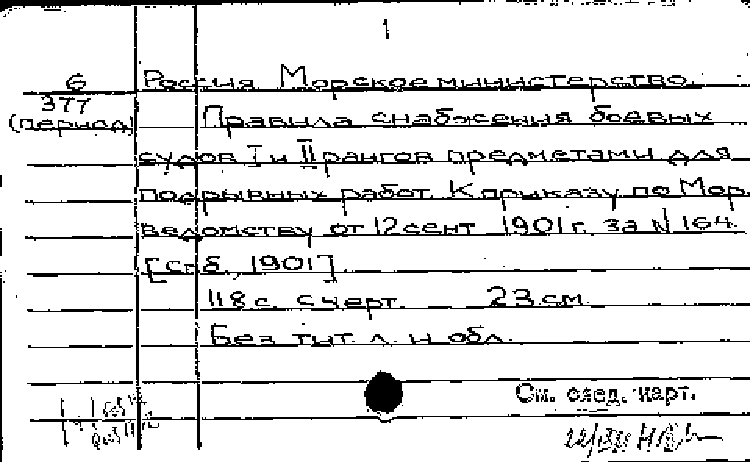 1
6 Россия Морское министерство.
377
(период) Правила снабжения боевых
судов I и II рангов предметами для
подрывных работ. К приказу по Мор.
ведомству от 12 сент 1901 г. за № 164.
[Спб., 1901].
118 с. с черт. 23 см.
Без тит. л. и обл.
См. след. карт.